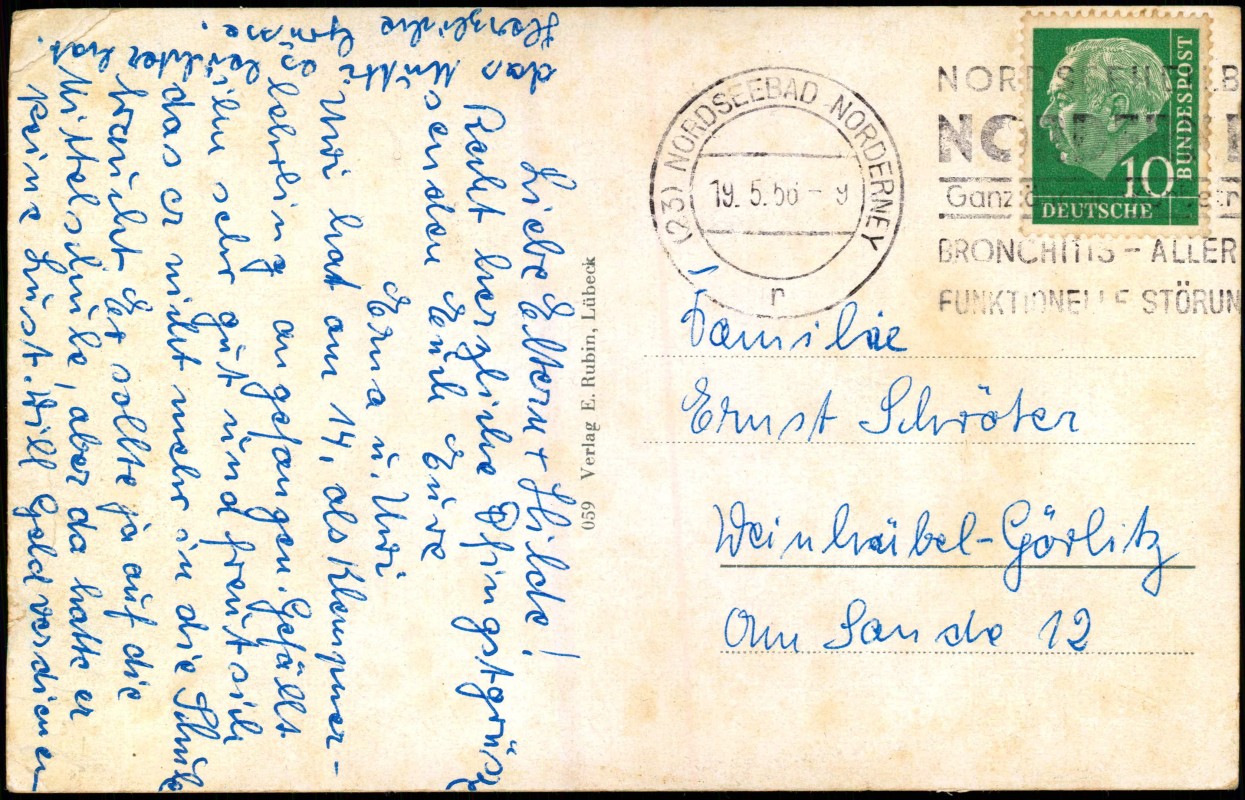 Liebe Eltern + Hilde!
Recht herzliche Pfingstgrüsse
senden Euch Eure
Erna u. Uwi
Uwi hat am 14. als Klempner-
lehrling angefangen. Gefällt
ihm sehr gut und freut sich
das er nicht mehr in die Schule
braucht. Er sollte ja auf die
Mittelschule, aber da hatte er
keine Lust. Will Geld verdienen
das Mutti
Es leichter hat.
Herzliche
Grüsse.
059 Verlag E. Rubin, Lübeck
(23) NORDSEEBAD NORDERNEY
19. 5. 56 - 9
r
BRONCHITIS - ALLER
FUNKTIONELLE STÖRUN
BUNDESPOST
10
DEUTSCHE
Familie
Ernst Schröter
Weinhübel-Görlitz
Am Sande 12